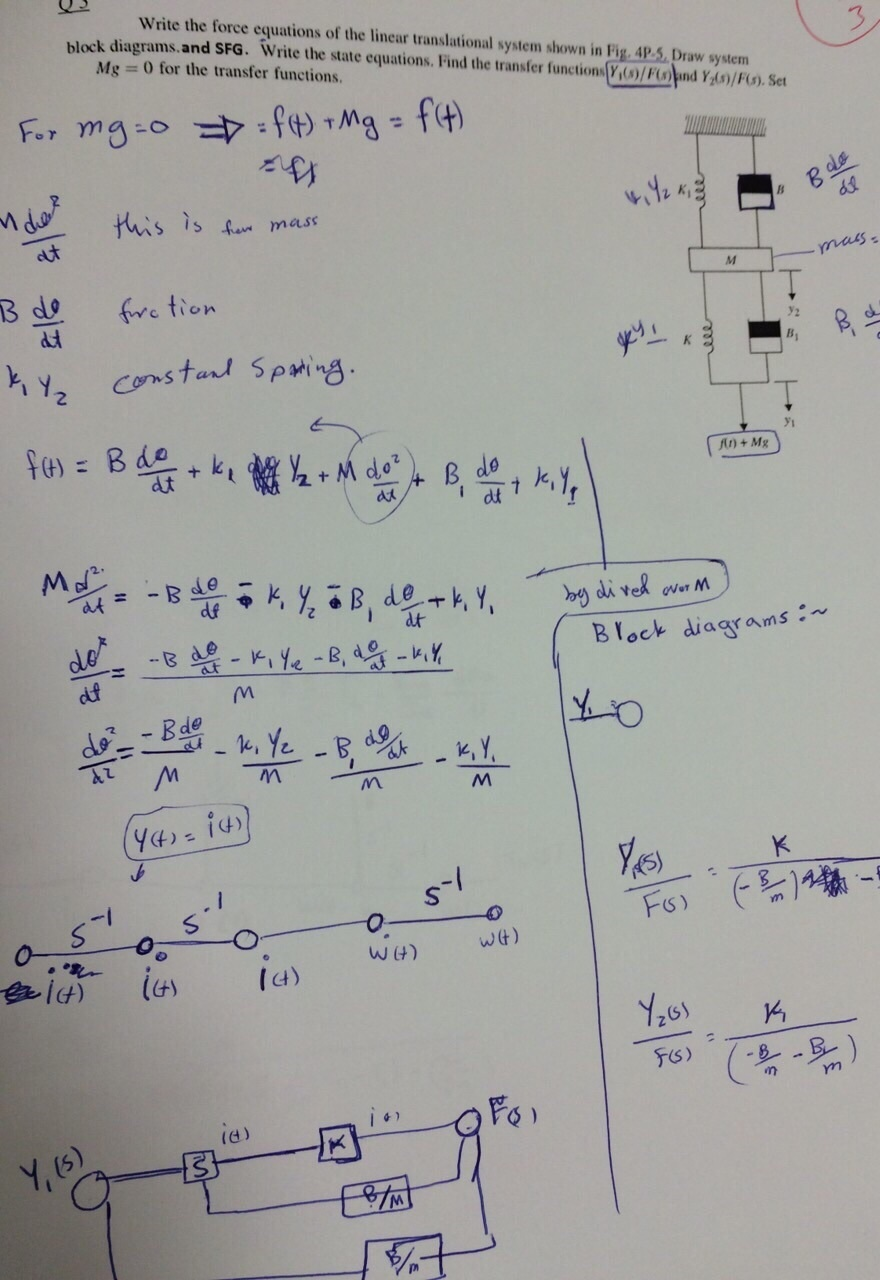 Q3
3
Write the force equations of the linear translational system shown in Fig. 4P-5. Draw system
block diagrams.and SFG. Write the state equations. Find the transfer functions Y₁(s)/F(s) and Y₂(s)/F(s). Set
Mg = 0 for the transfer functions.
For mg=0 ⟹ = f(t) + Mg = f(t)
M dθ²/dt this is for mass
B dθ/dt friction
k₁ Y₂ constant spring.
K₁
B
B dθ/dt
M
mass=
y₂
K
B₁
y₁
f(t) + Mg
f(t) = B dθ/dt + k₁ Y₂ + M dθ²/dt + B₁ dθ/dt + k₁ Y₁
M d²/dt = -B dθ/dt - k₁ Y₂ - B₁ dθ/dt + k₁ Y₁
by dived over M
dθ²/dt = (-B dθ/dt - k₁ Y₂ - B₁ dθ/dt - k₁ Y₁)/M
dθ²/d2 = -B dθ/dt / M - k₁ Y₂/m - B₁ dθ/dt / m - k₁ Y₁/M
Y(t) = i(t)
S⁻¹ S⁻¹ S⁻¹
i(t) i(t) i(t) w(t) w(t)
Y₁(s) S i(t) K F(s)
B/M
B/m
Block diagrams :~
Y₁
Y₁(s)/F(s) = K/(-B/m)
Y₂(s)/F(s) = K₁/(-B/m - B₁/m)